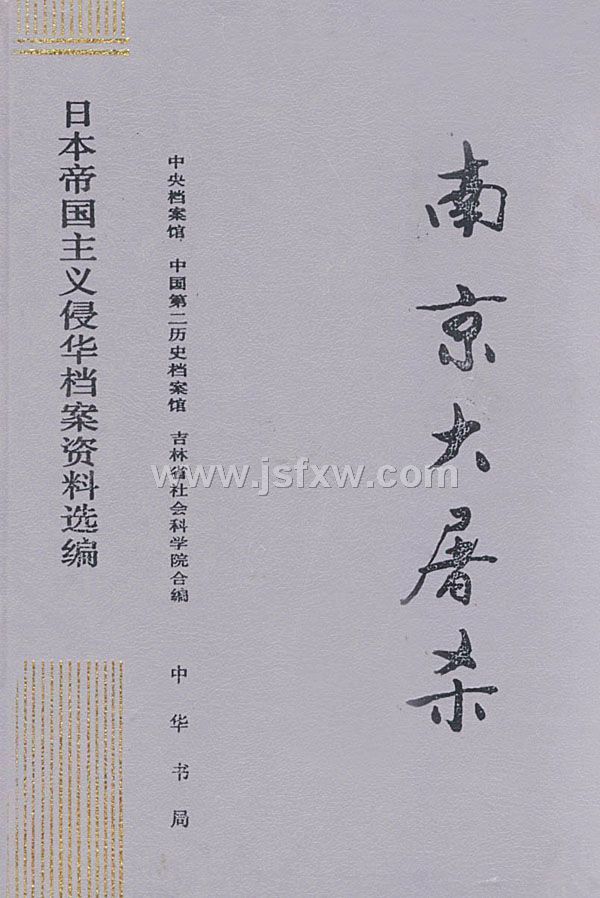 南京大屠杀
中央档案馆 中国第二历史档案馆 吉林省社会科学院合编
中华书局
日本帝国主义侵华档案资料选编
www.jsfxw.com